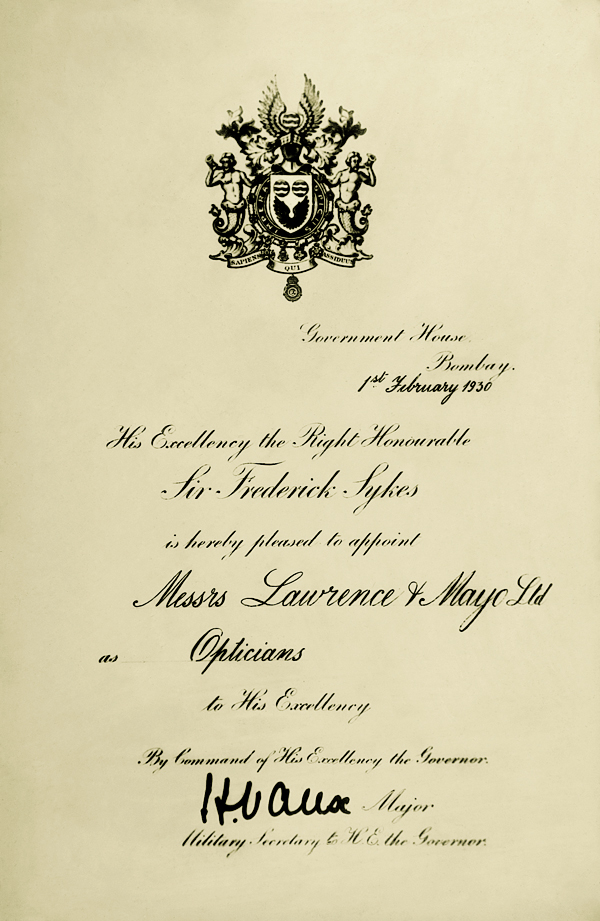 SAPIENS QUI ASSIDUUS
Government House,
Bombay.
1st February 1930
His Excellency the Right Honourable
Sir Frederick Sykes
is hereby pleased to appoint
Messrs Lawrence & Mayo Ltd
as Opticians
to His Excellency
By Command of His Excellency the Governor.
H. Vaux Major
Military Secretary to H.E. the Governor.